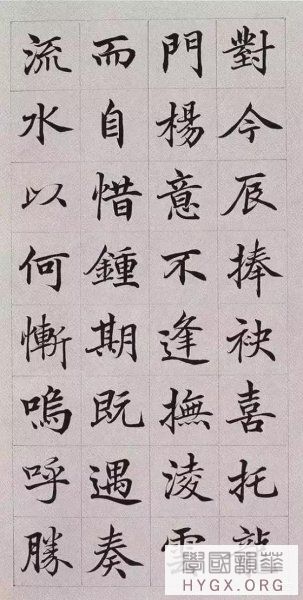 對今辰捧袂喜托龍
門楊意不逢撫淩雲
而自惜鍾期既遇奏
流水以何慚嗚呼勝
華韻國學
HYGX.ORG